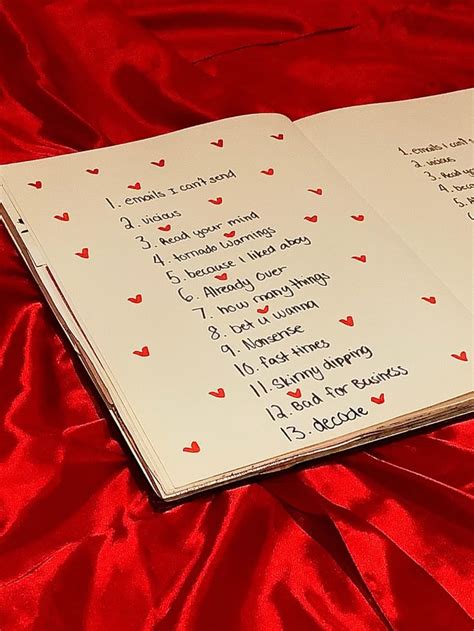 1. emails I can't send
2. vicious
3. Read your mind
4. tornado warnings
5. because I liked a boy
6. Already over
7. how many things
8. bet u wanna
9. Nonsense
10. fast times
11. Skinny dipping
12. Bad for Business
13. decode
1. emails I can't send
2. vicious
3. Read your
4. tornado
5. because
6.